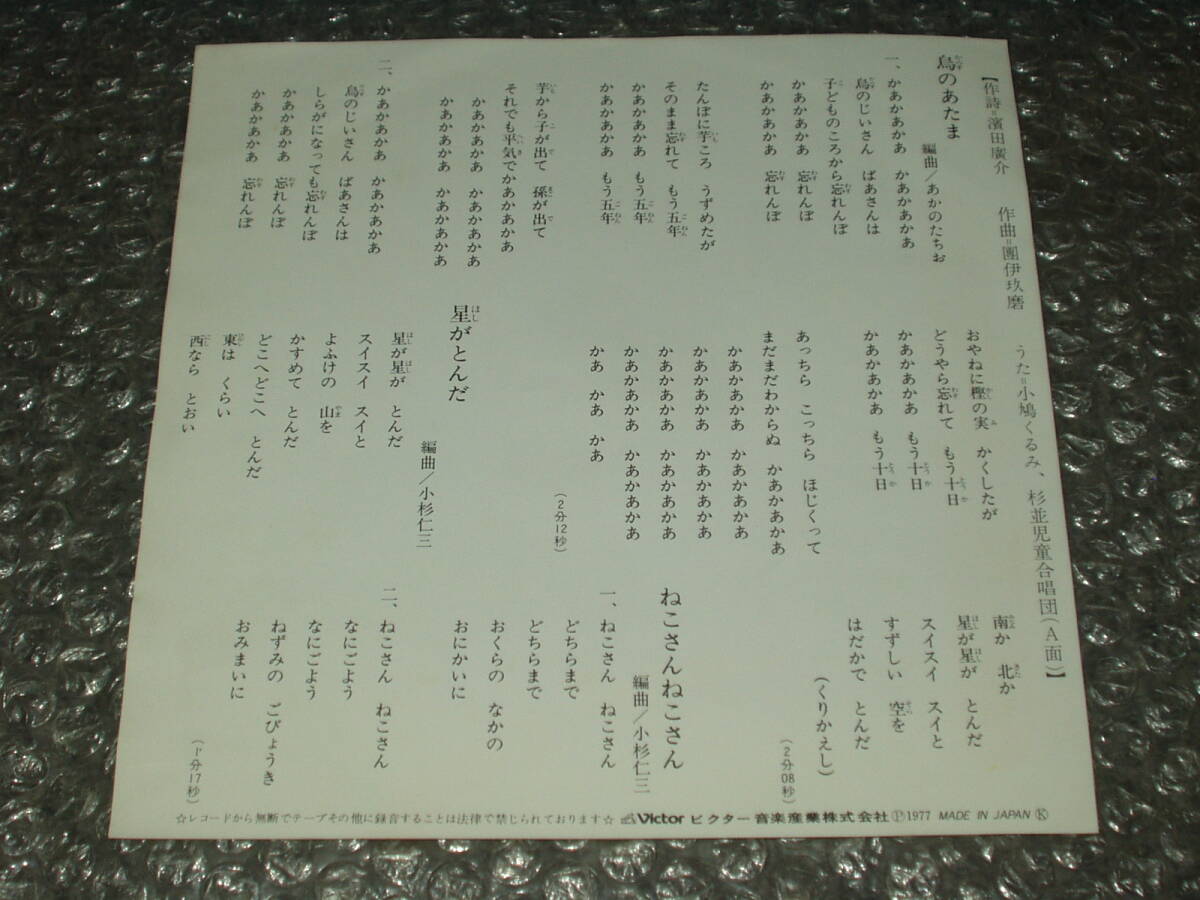 【作詩=濱田廣介　作曲=團伊玖磨　うた=小鳩くるみ、杉並児童合唱団(A面)】
烏のあたま
編曲/あかのたちお
一、かあかあかあ　かあかあかあ
烏のじいさん　ばあさんは
子どものころから忘れんぼ
かあかあかあ　忘れんぼ
かあかあかあ　忘れんぼ
たんぼに芋ころ　うずめたが
そのまま忘れて　もう五年
かあかあかあ　もう五年
かあかあかあ　もう五年
芋から子が出て　孫が出て
それでも平気でかあかあかあ
かあかあかあ　かあかあかあ
かあかあかあ　かあかあかあ
二、かあかあかあ　かあかあかあ
烏のじいさん　ばあさんは
しらがになっても忘れんぼ
かあかあかあ　忘れんぼ
かあかあかあ　忘れんぼ
おやねに樫の実　かくしたが
どうやら忘れて　もう十日
かあかあかあ　もう十日
かあかあかあ　もう十日
あっちら　こっちら　ほじくって
まだまだわからぬ　かあかあかあ
かあかあかあ　かあかあかあ
かあかあかあ　かあかあかあ
かあかあかあ　かあかあかあ
かあかあかあ　かあかあかあ
かあ　かあ　かあ
(2分12秒)
星がとんだ
編曲/小杉仁三
星が星が　とんだ
スイスイ　スイと
よふけの　山を
かすめて　とんだ
どこへどこへ　とんだ
東は　くらい
西なら　とおい
南か　北か
星が星が　とんだ
スイスイ　スイと
すずしい　空を
はだかで　とんだ
(くりかえし)
(2分08秒)
ねこさんねこさん
編曲/小杉仁三
一、ねこさん　ねこさん
どちらまで
どちらまで
おくらの　なかの
おにかいに
二、ねこさん　ねこさん
なにごよう
なにごよう
ねずみの　ごびょうき
おみまいに
(1分17秒)
☆レコードから無断でテープその他に録音することは法律で禁じられております☆ Victor ビクター音楽産業株式会社 Ⓟ1977 MADE IN JAPAN Ⓚ